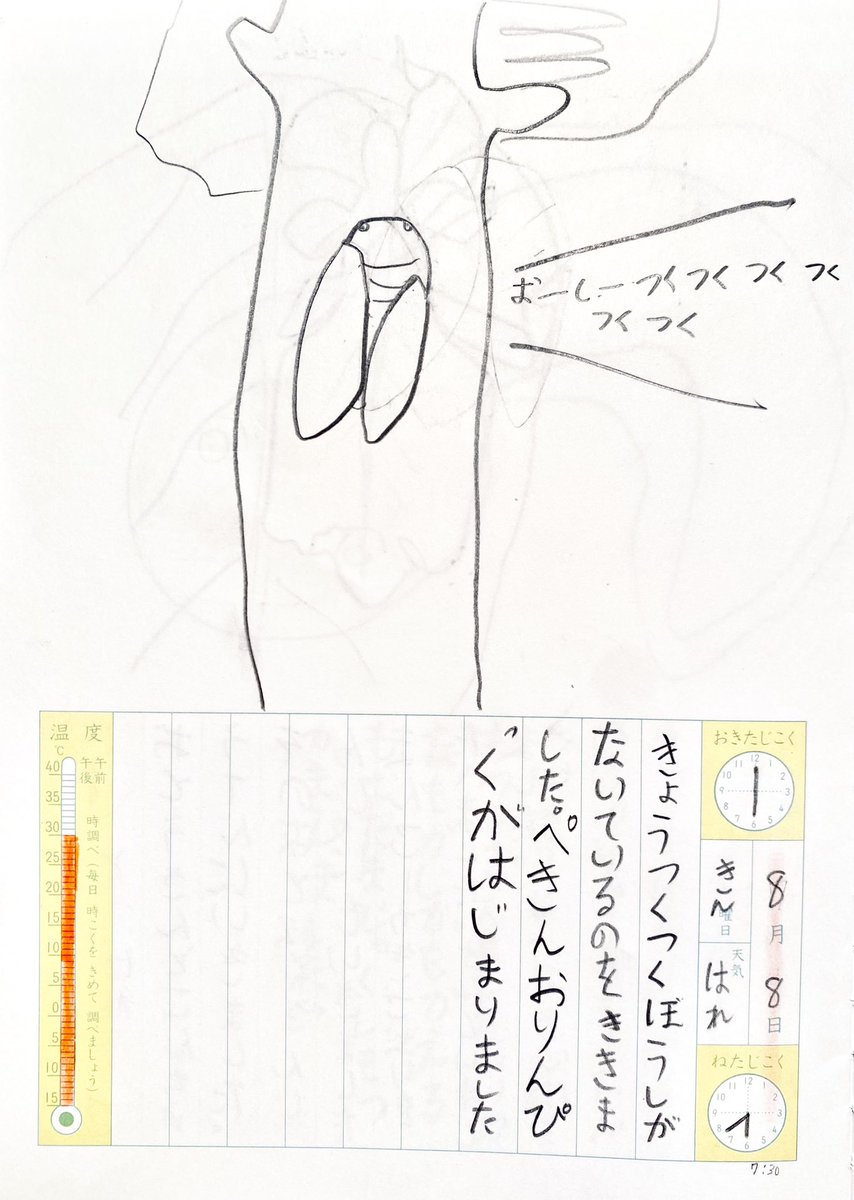 おーしーつくつくつくつく
つくつく
おきたじこく
8月8日
きん曜日
天気
はれ
ねたじこく
7:30
きょうつくつくぼうしが
ないているのをききま
した。ぺきんおりんぴ
っくがはじまりました
温度
℃
午前
午後
時調べ(毎日 時こくを きめて 調べましょう)
40
35
30
25
20
15
10
5
0
5
10
15
12
1
2
3
4
5
6
7
8
9
10
11
12
1
2
3
4
5
6
7
8
9
10
11